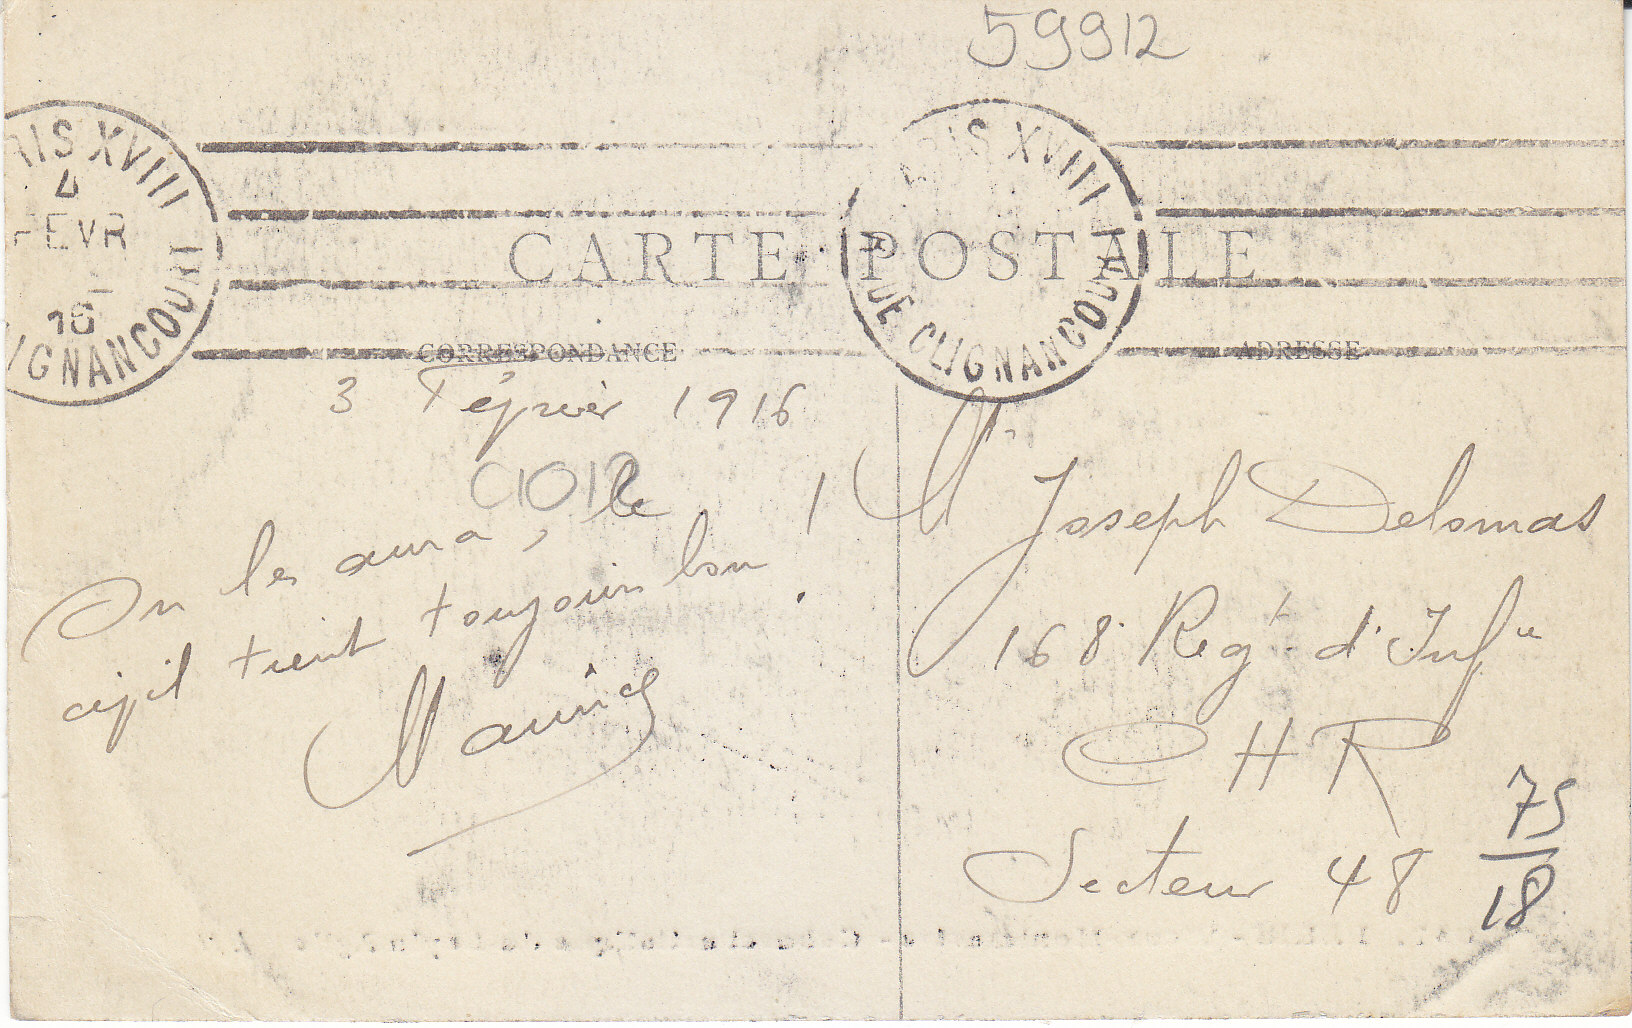 59912
PARIS XVIII
4
FEVR
16
CLIGNANCOURT
PARIS XVIII
R. DE CLIGNANCOURT
CARTE POSTALE
CORRESPONDANCE
ADRESSE
3 Février 1916
C1012
On les aura, le
civil tient toujours bon !
Maurice
Mr Joseph Delomas
168 Regt d'Infie
CHR
Secteur 48
75
18